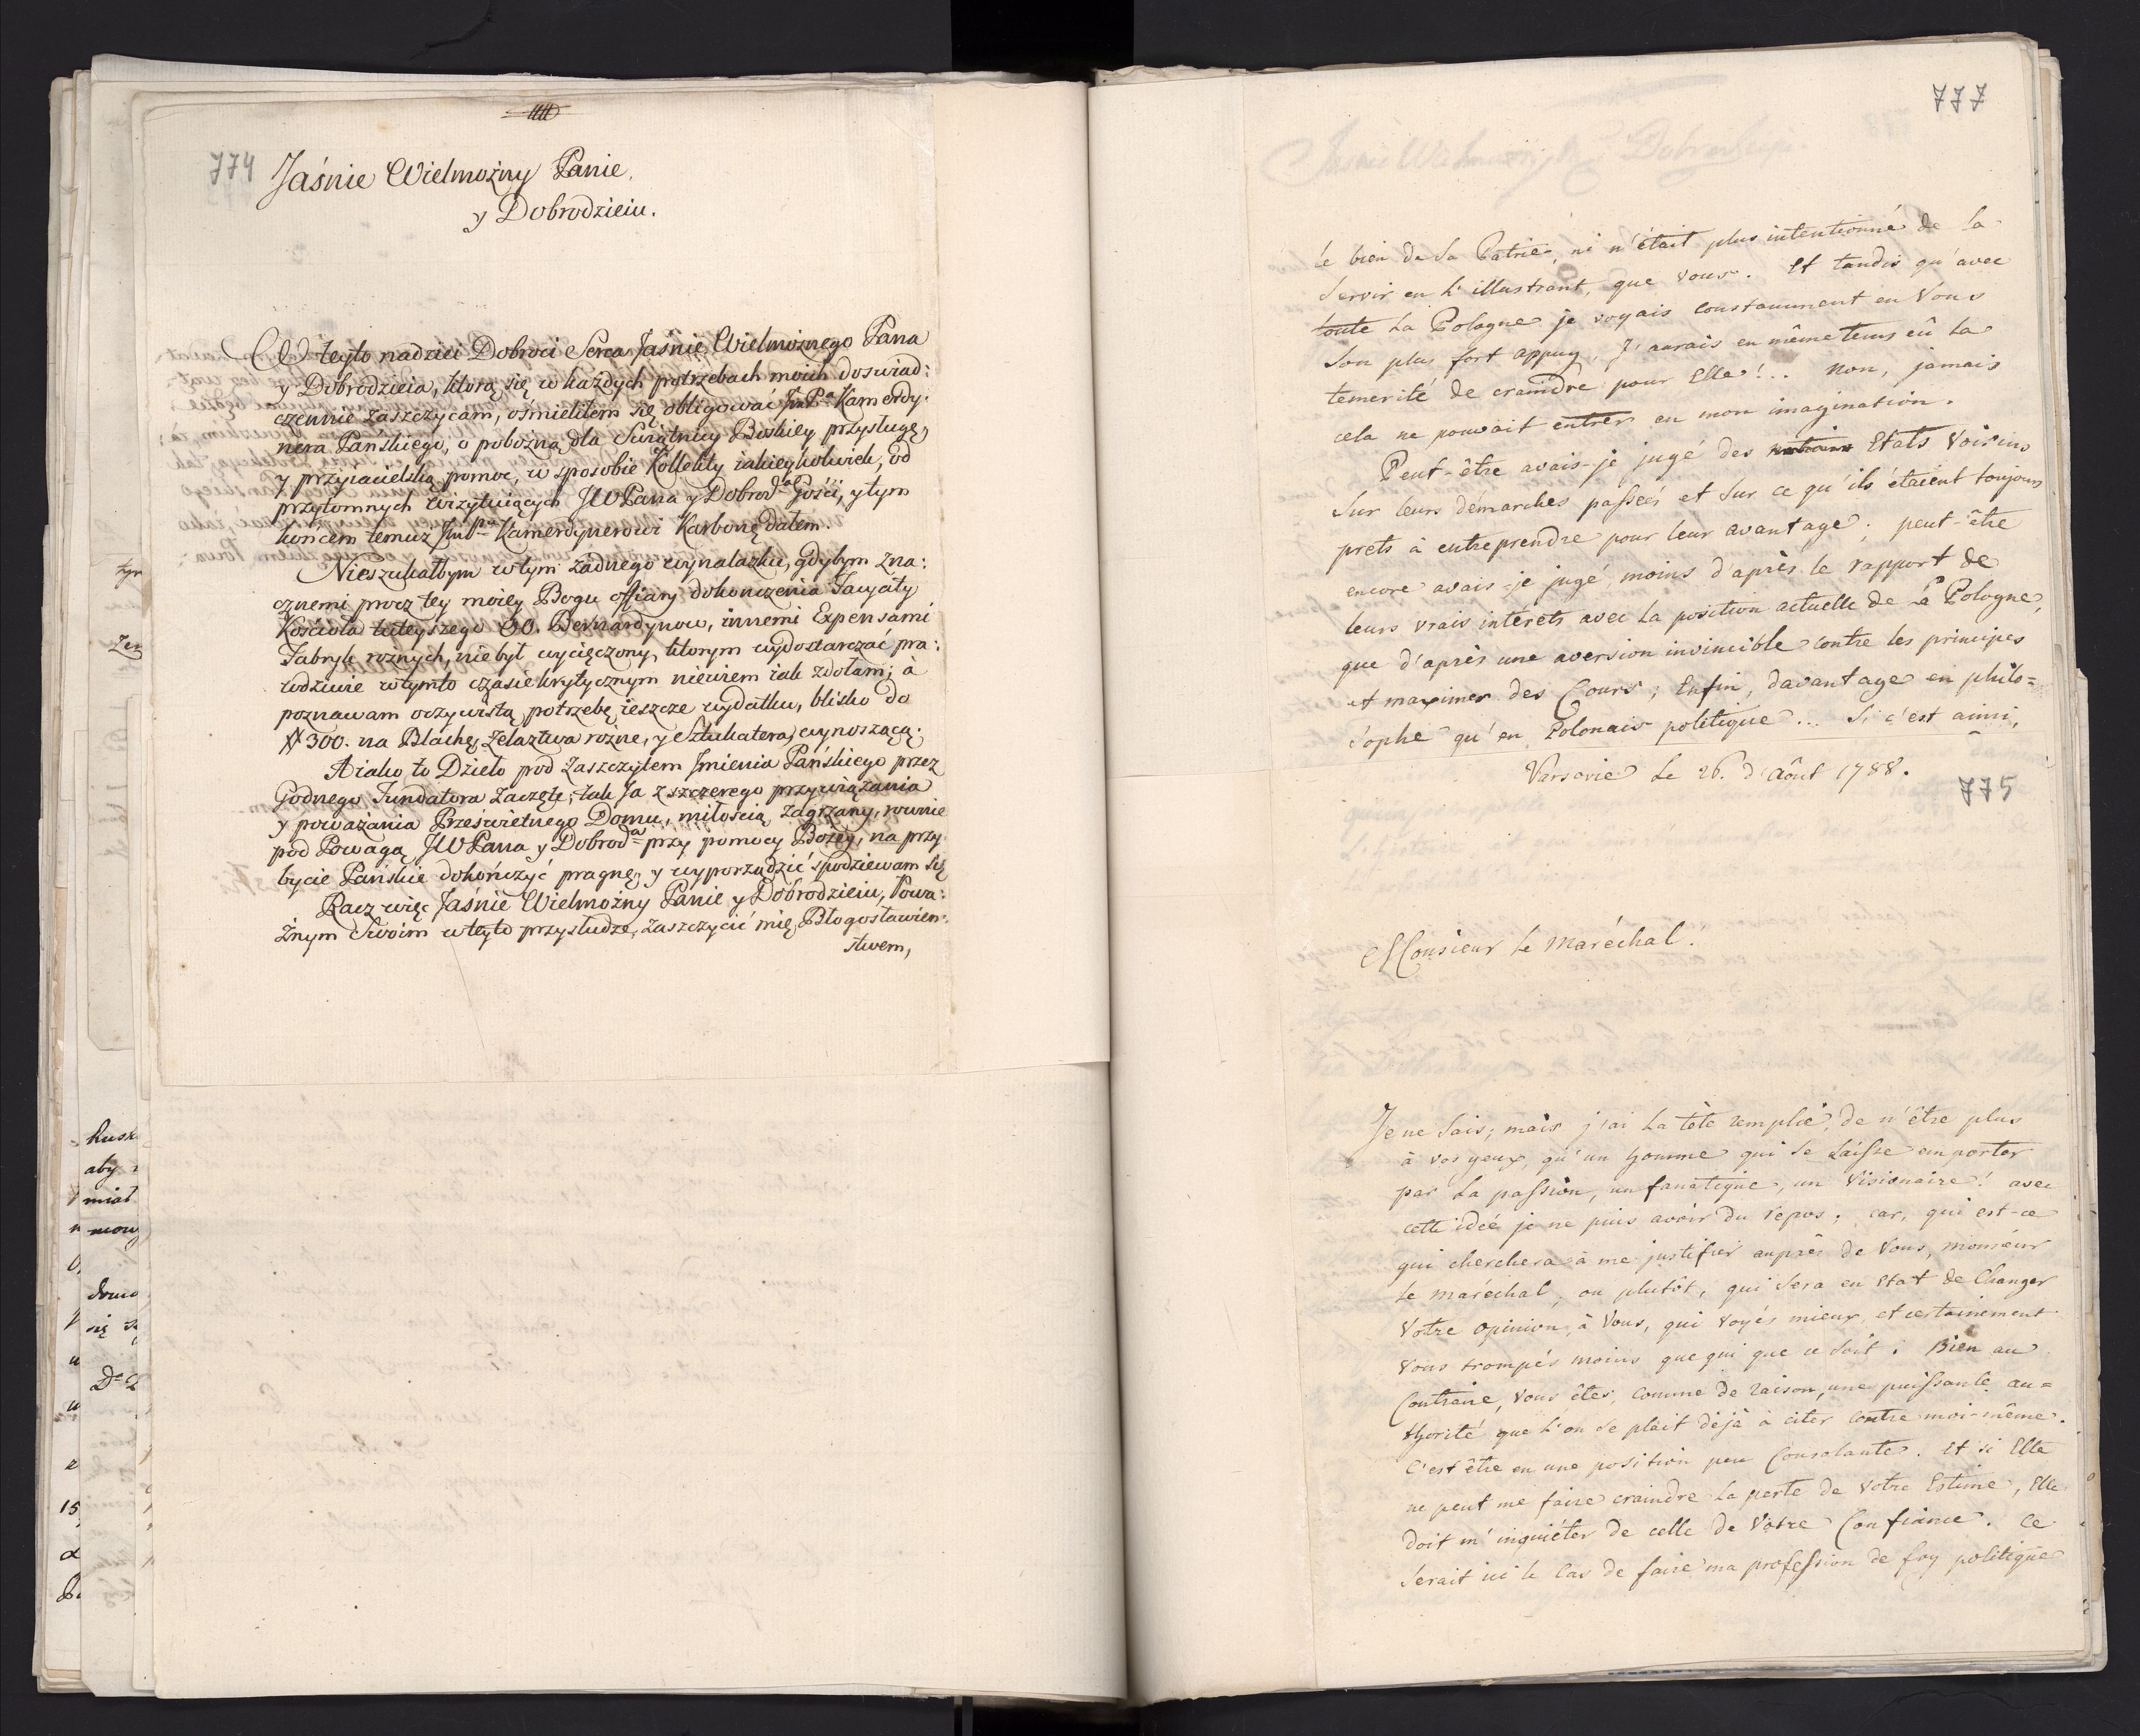 774
Jaśnie Wielmożny Panie,
y Dobrodzieiu.
Od teyto nadziei Dobroci Serca Jaśnie Wielmożnego Pana
y Dobrodzieia, ktorą się w każdych potrzebach moich doswiad:
czennie zaszczycam, osmieliłem się obligować ImPa Kamerdy:
nera Pańskiego, o pobożną dla Swiątnicy Boskiey przysługę,
y przyiacielską pomoc, w sposobie Kollekty iakieykolwiek, od
przytomnych wizytuiących JWPana y Dobrodª Gości, y tym
końcem temuż ImPnu Kamerdynerowi Karbonę dałem.
Nieszukałbym w tym żadnego wynalazku, gdybym zna:
cznemi procz tey moiey Bogu offiary dokonczenia Facyaty
Kościoła tuteyszego OO. Bernardynow, innemi Expensami
Fabryk rożnych, nie był wycięczony, ktorym wydostarczać pra:
wdziwie w tymto czasie krytycznym niewiem iak zdołam; à
poznawam oczywistą potrzebę ieszcze wydatku, blisko do
# 300. na Blachę, żelaztwa rożne, y Sztukatera, wynoszącą.
A iako to Dzieło pod zaszczytem Imienia Pańskiego przez
Godnego Fundatora zaczęte; tak Ja z szczerego przywiązania
y poważania Prześwietnego Domu, miłością zagrzany, rownie
pod Powagą JWPana y Dobrodª przy pomocy Bożey, na przy:
bycie Pańskie dokończyć pragnę, y wyporządzić spodziewam się
Racz więc Jaśnie Wielmożny Panie y Dobrodzieiu, Powa:
żnym Swoim w teyto przysłudze, zaszczycić mię Błogosławień:
stwem,
777
le bien de sa Patrie, ni n'était plus intentionné de la
servir en l'illustrant, que vous. Et tandis qu'avec
toute la Pologne je voyais constamment en Vous
son plus fort appuy, J'aurais en même tems eû la
temerité de craindre pour Elle!.. Non, jamais
cela ne pouvait entrer en mon imagination.
Peut-être avais-je jugé des Etats Voisins
sur leurs démarches passées et sur ce qu'ils étaient toujours
prets à entreprendre pour leur avantage; peut-être
encore avais-je jugé moins d'après le rapport de
leurs vrais intérets avec la position actuelle de la Pologne,
que d'après une aversion invincible contre les principes
et maximes des Cours; Enfin, davantage en philo=
sophe qu'en Polonais politique... Si c'est ainsi,
Varsovie le 26. d'Août 1788.
775
Monsieur le Maréchal!
Je ne sais; mais j'ai la tête remplie, de n'être plus
à vos yeux, qu'un homme qui se laisse emporter
par la passion, un fanatique, un Visionaire! avec
cette idée je ne puis avoir du repos; car, qui est-ce
qui cherchera à me justifier auprès de Vous, monsieur
le maréchal, ou plutôt, qui sera en Etat de Changer
Votre opinion, à Vous, qui voyés mieux, et certainement
vous trompés moins que qui que ce soit; Bien au
Contraire, vous êtes, comme de raison, une puissante au=
thorité que l'on se plait déjà à citer contre moi-même.
C'est être en une position peu Consolante. Et si Elle
ne peut me faire craindre la perte de votre Estime, Elle
doit m'inquiéter de celle de Votre Confiance. Ce
serait ici le Cas de faire ma profession de foy politique